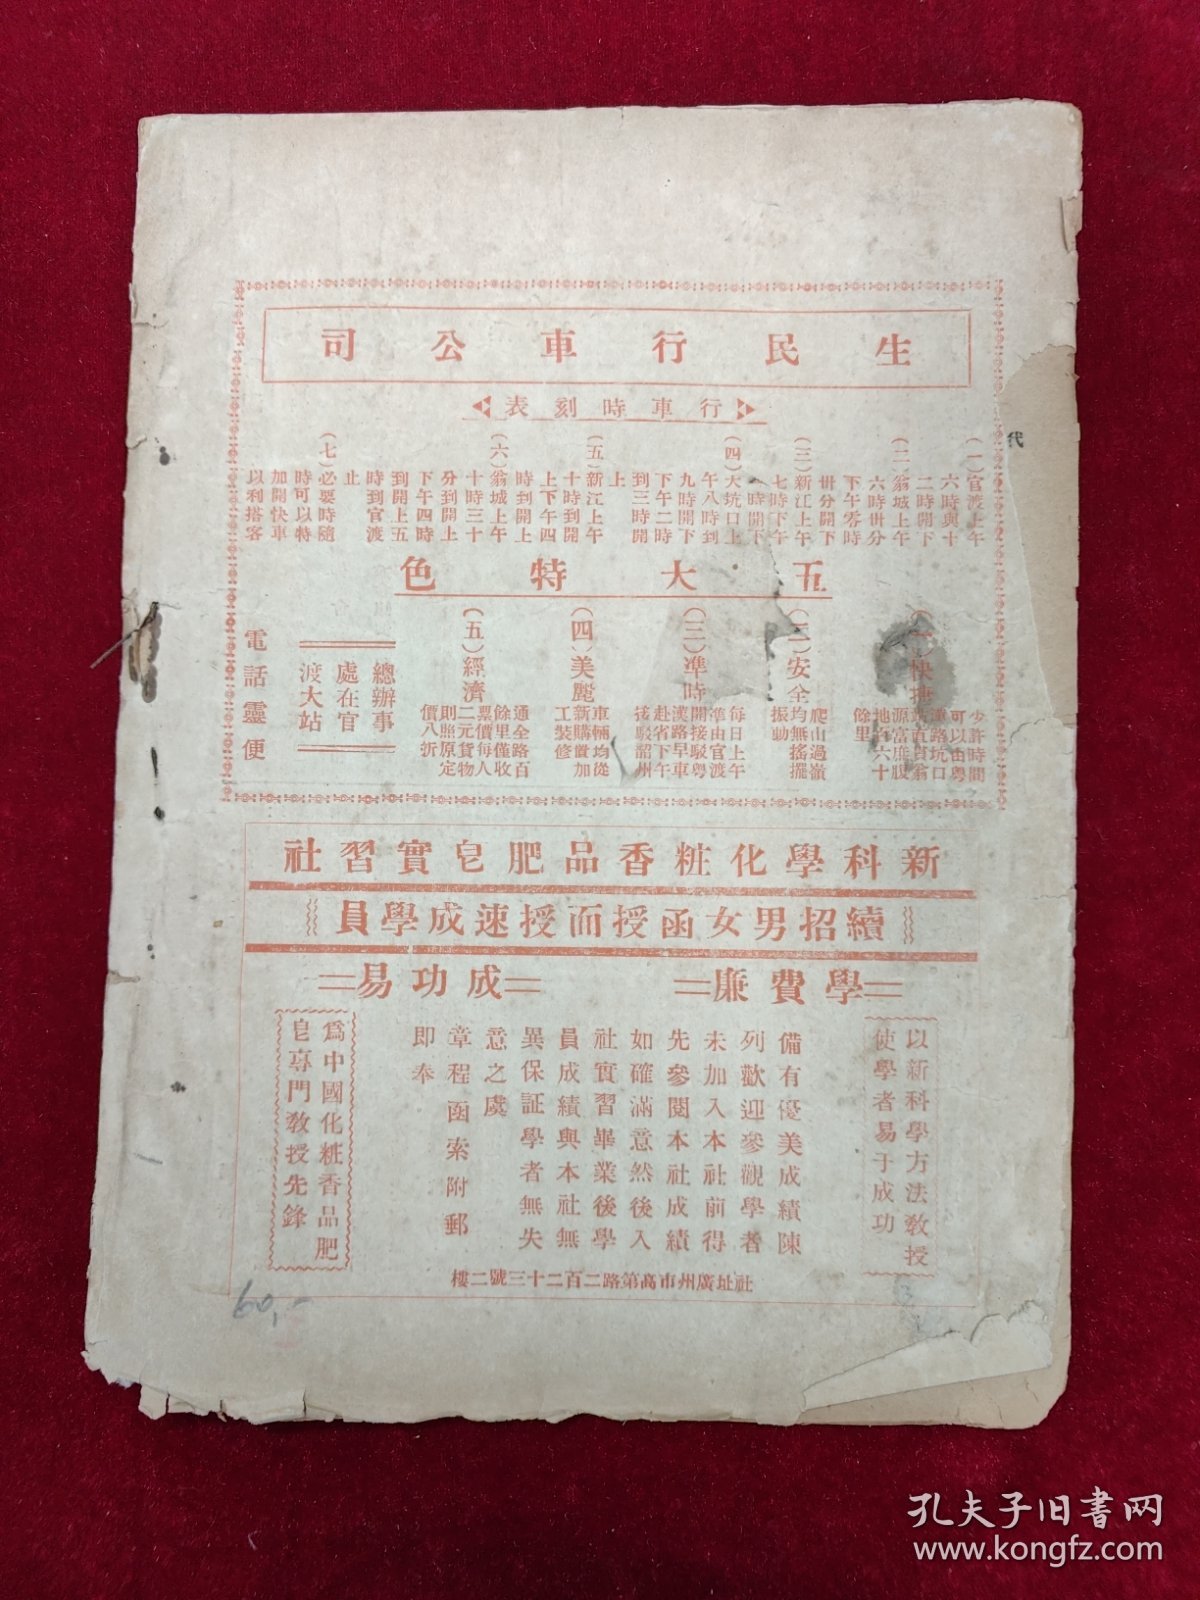 生民行車公司
行車時刻表
(一)官渡上午
六時與十
二時開下
(二)翁城上午
六時卅分
下午零時
卅分開下
(三)新江上午
七時下午
一時開下
(四)大坑口上
午八時到
九時開下
下午二時
到三時開
上
(五)新江上午
十時到開
上下午四
時到開上
(六)翁城上午
十時三十
分到開上
下午四時
到開上五
時到官渡
止
(七)必要時隨
時可以特
加開快車
以利搭客
五大特色
(一)快捷
少許時間
可以由粵
路坑口
翁
源富庶腹
地百六十
餘里
(二)安全
爬山過嶺
均無搖擺
振動
(三)準時
每日上午
準由官渡
開接駁粵
漢路早車
赴省下午
接駁韶州
(四)美麗
車輛均從
新購置加
工裝修
(五)經濟
通全路百
餘里僅收
票價每人
二元貨物
則照原定
價八折
總辦事
處在官
渡大站
電話靈便
代
新科學化粧香品肥皂實習社
續招男女函授面授速成學員
學費廉
成功易
以新科學方法教授
使學者易于成功
備有優美成績陳
列歡迎參觀學者
未加入本社前得
先參閱本社成績
如確滿意然後入
社實習畢業後學
員成績與本社無
異保証學者無失
意之虞
章程函索附郵
即奉
爲中國化粧香品肥
皂專門教授先鋒
社址廣州市高第路二百二十三號二樓
60,-
孔夫子旧书网
www.kongfz.com